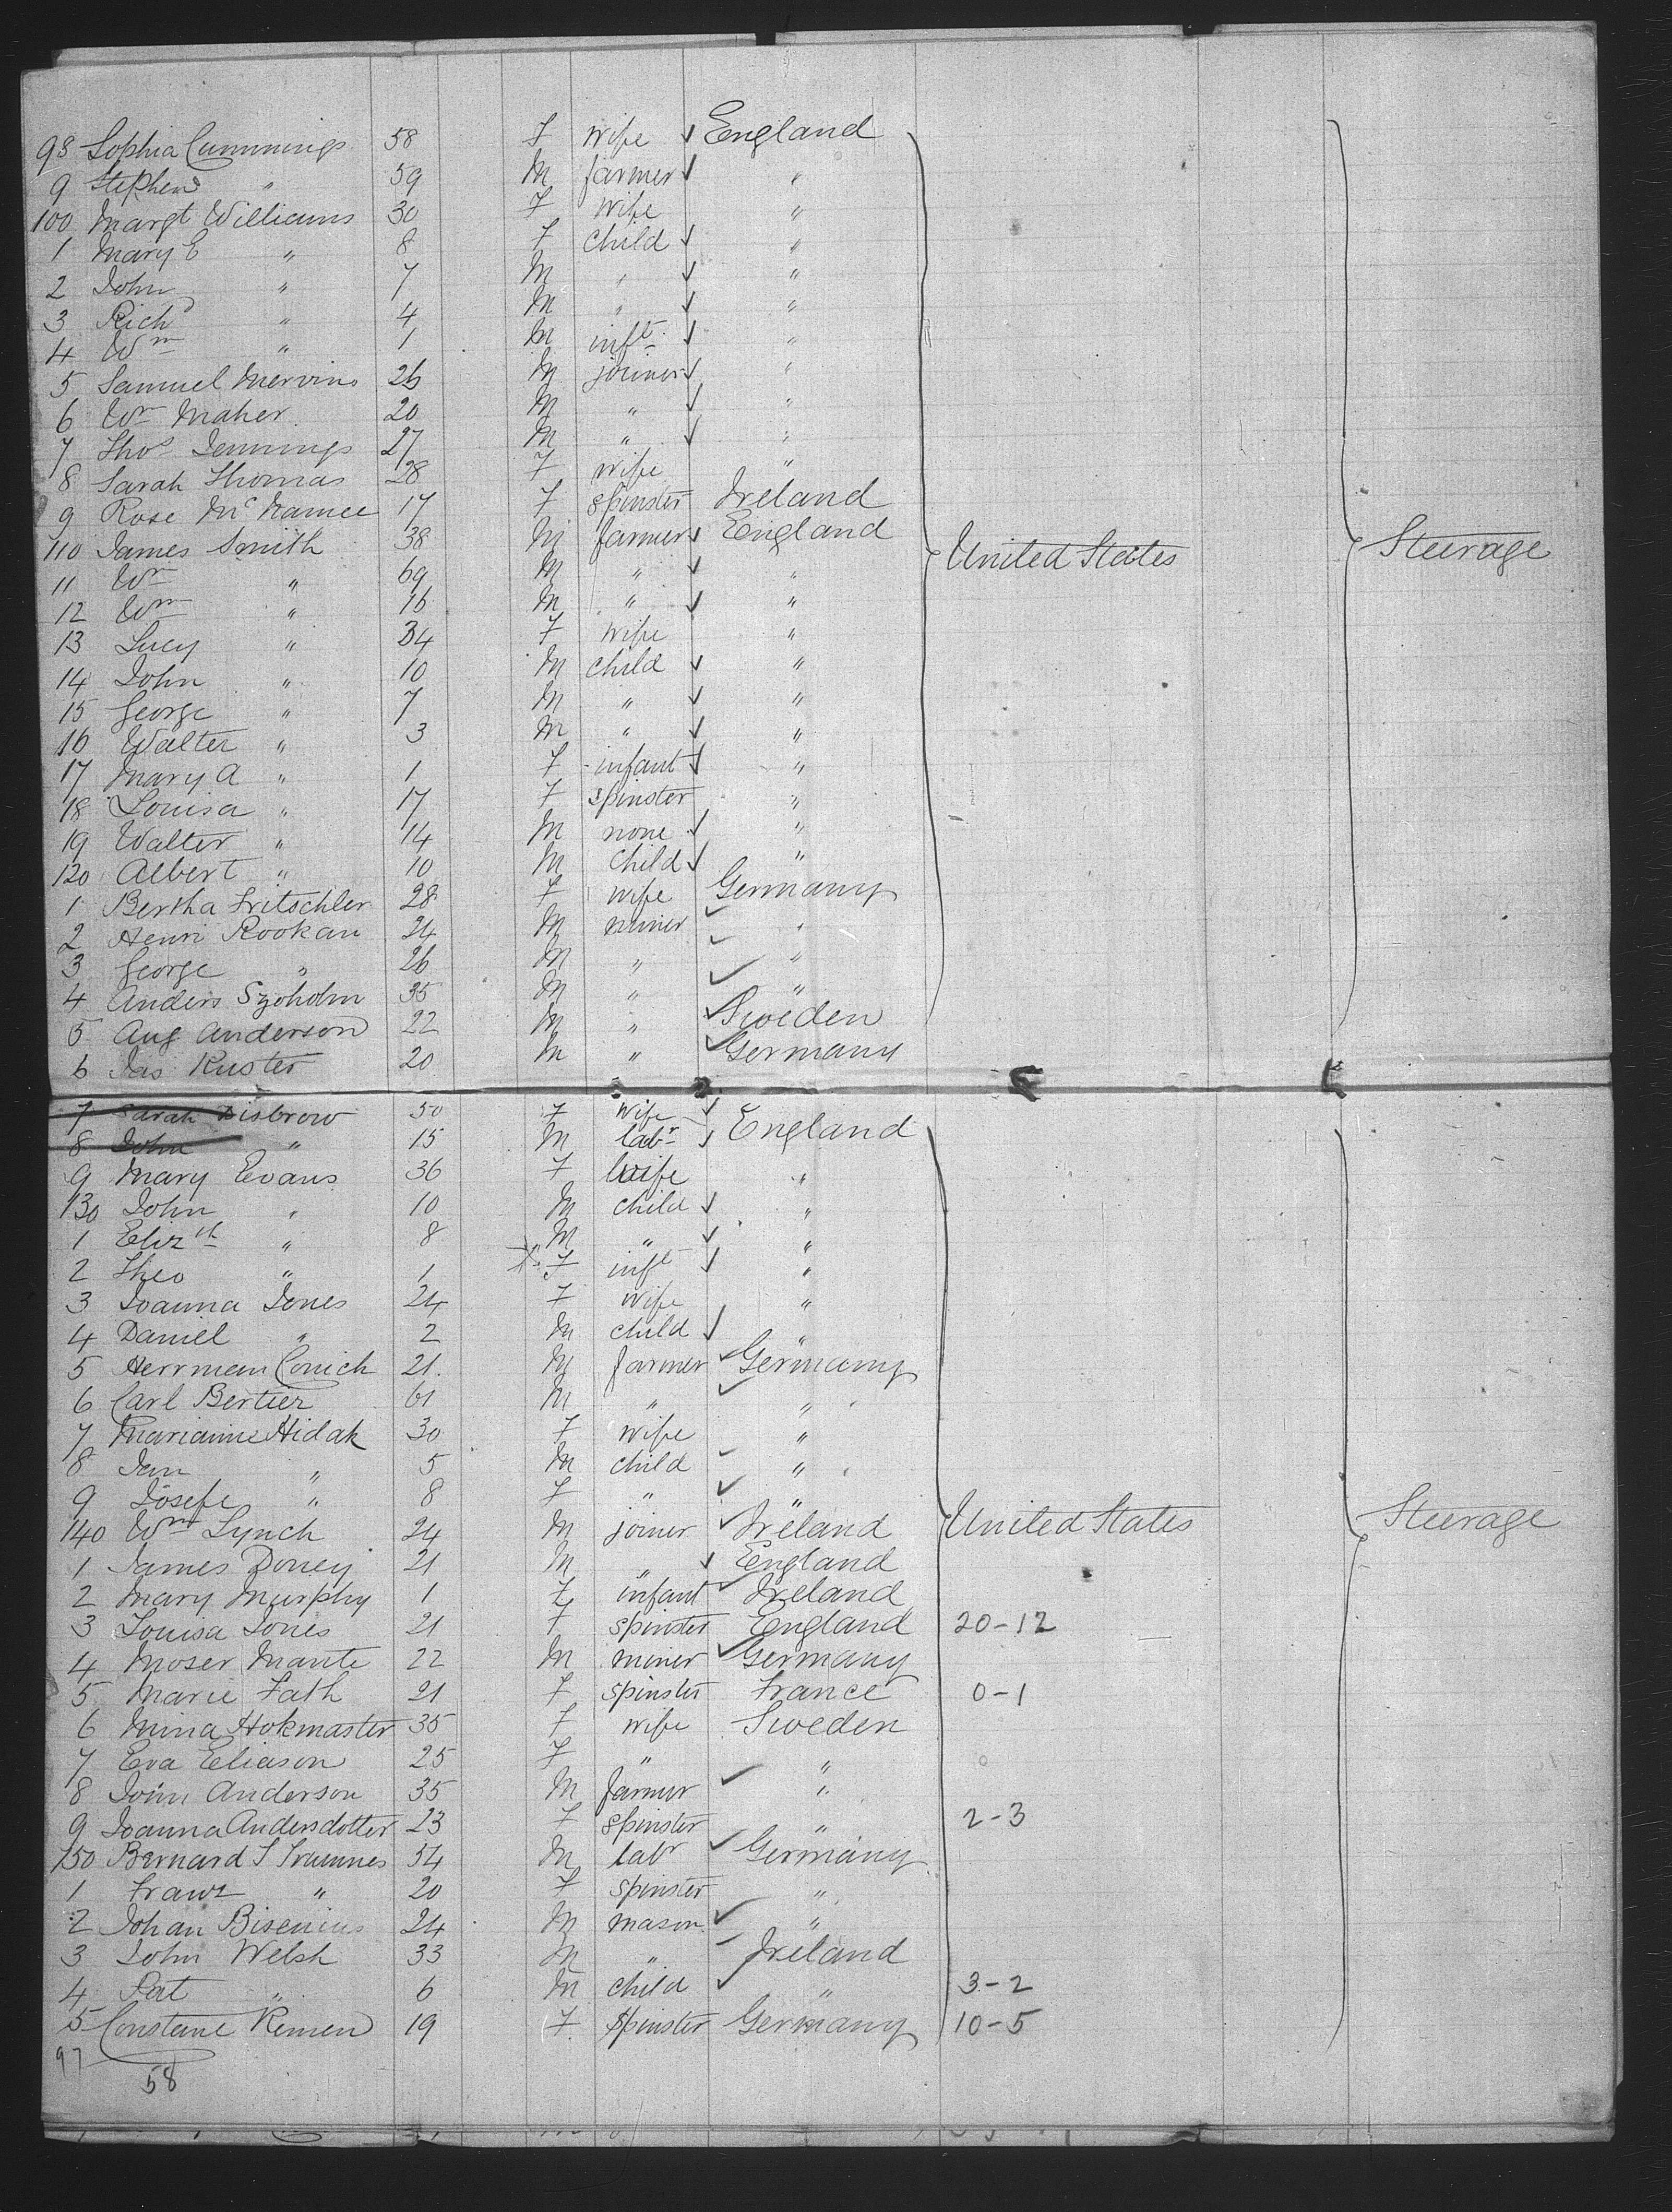 98 Sophia Cummings 58 F wife ✓ England
9 Stephen " 59 M farmer ✓ "
100 Margt Williams 30 F wife "
1 Mary E " 8 F child ✓ "
2 John " 7 M " ✓ "
3 Richd " 4 M " ✓ "
4 Wm " 1 M inft ✓ "
5 Samuel Mervins 26 M joiner ✓ "
6 Wm Maher 20 M " ✓ "
7 Thos Jennings 27 M " ✓ "
8 Sarah Thomas 28 F wife "
9 Rose McNamee 17 F spinster Ireland
110 James Smith 38 M farmer ✓ England United States Steerage
11 Wm " 69 M " ✓ "
12 Wm " 16 M " ✓ "
13 Lucy " 34 F wife "
14 John " 10 M child ✓ "
15 George " 7 M " ✓ "
16 Walter " 3 M " ✓ "
17 Mary A " 1 F infant ✓ "
18 Louisa " 17 F spinster "
19 Walter " 14 M none ✓ "
120 Albert " 10 M child ✓ "
1 Bertha Fritschler 28 F wife Germany
2 Henri Rookan 24 M miner ✓ "
3 George " 26 M " ✓ "
4 Anders Szoholm 35 M " ✓ "
5 Aug Anderson 22 M " ✓ Sweden
6 Jas Kuster 20 M " ✓ Germany
7 Sarah Disbrow 50 F wife ✓ England
8 John " 15 M labr ✓
9 Mary Evans 36 F wife "
130 John " 10 M child ✓ "
1 Elizth " 8 M " ✓ "
2 Theo " 1 F inft ✓ "
3 Joanna Jones 24 F wife "
4 Daniel " 2 M child ✓ "
5 Herrman Conich 21 M farmer ✓ Germany
6 Carl Bertier 61 M " ✓ "
7 Marianne Hidak 30 F wife "
8 Jan " 5 M child ✓ "
9 Josefe " 8 F " ✓ "
140 Wm Lynch 24 M joiner ✓ Ireland United States Steerage
1 James Doney 21 M " ✓ England
2 Mary Murphy 1 F infant ✓ Ireland
3 Louisa Jones 21 F spinster England 20-12
4 Moser Mante 22 M miner ✓ Germany
5 Marie Fath 21 F spinster France 0-1
6 Mina Hokmaster 35 F wife Sweden
7 Eva Eliason 25 F " "
8 John Anderson 35 M farmer ✓ "
9 Joanna Andersdotter 23 F spinster " 2-3
150 Bernard 54 M labr ✓ Germany
1 Franz " 20 F spinster "
2 Johan Bisenius 24 M mason ✓ "
3 John Welsh 33 M " ✓ Ireland
4 Pat " 6 M child ✓ " 3-2
5 Constane Remen 19 F spinster Germany 10-5
97
58